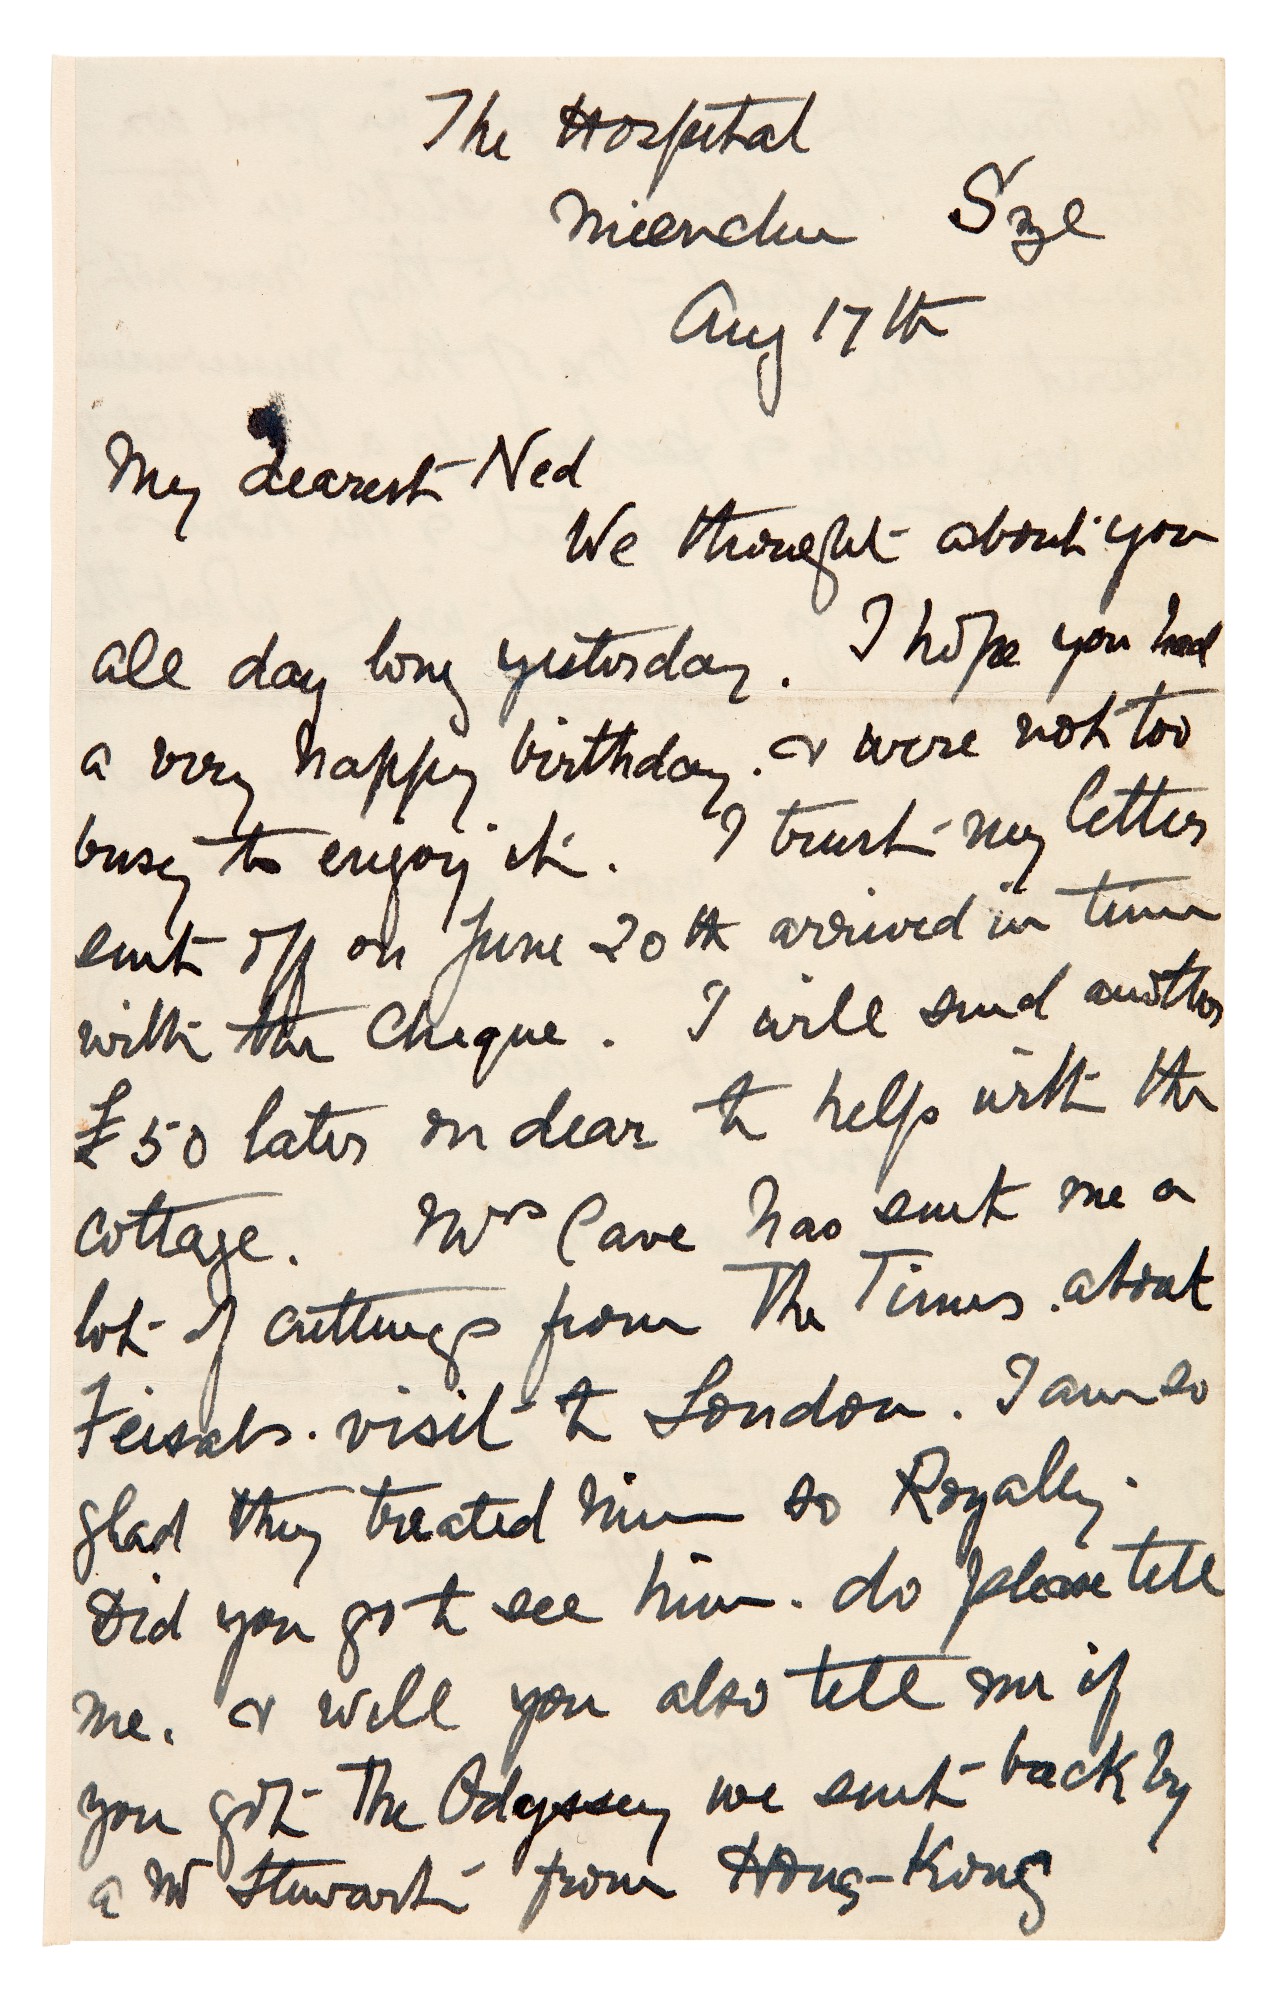 The Hospital
Mienchu Sze
Aug 17th
My dearest Ned
We thought about you
all day long yesterday. I hope you had
a very happy birthday. & were not too
busy to enjoy it. I trust my letter
sent off on June 20th arrived in time
with the Cheque. I will send another
£50 later on dear to help with the
cottage. Mrs Cave has sent me a
lot of cuttings from The Times. about
Feisals. visit to London. I am so
glad they treated him so Royally.
Did you go to see him. do please tell
me. & will you also tell me if
you got The Odyssey we sent back by
a Mr Stewart from Hong-Kong